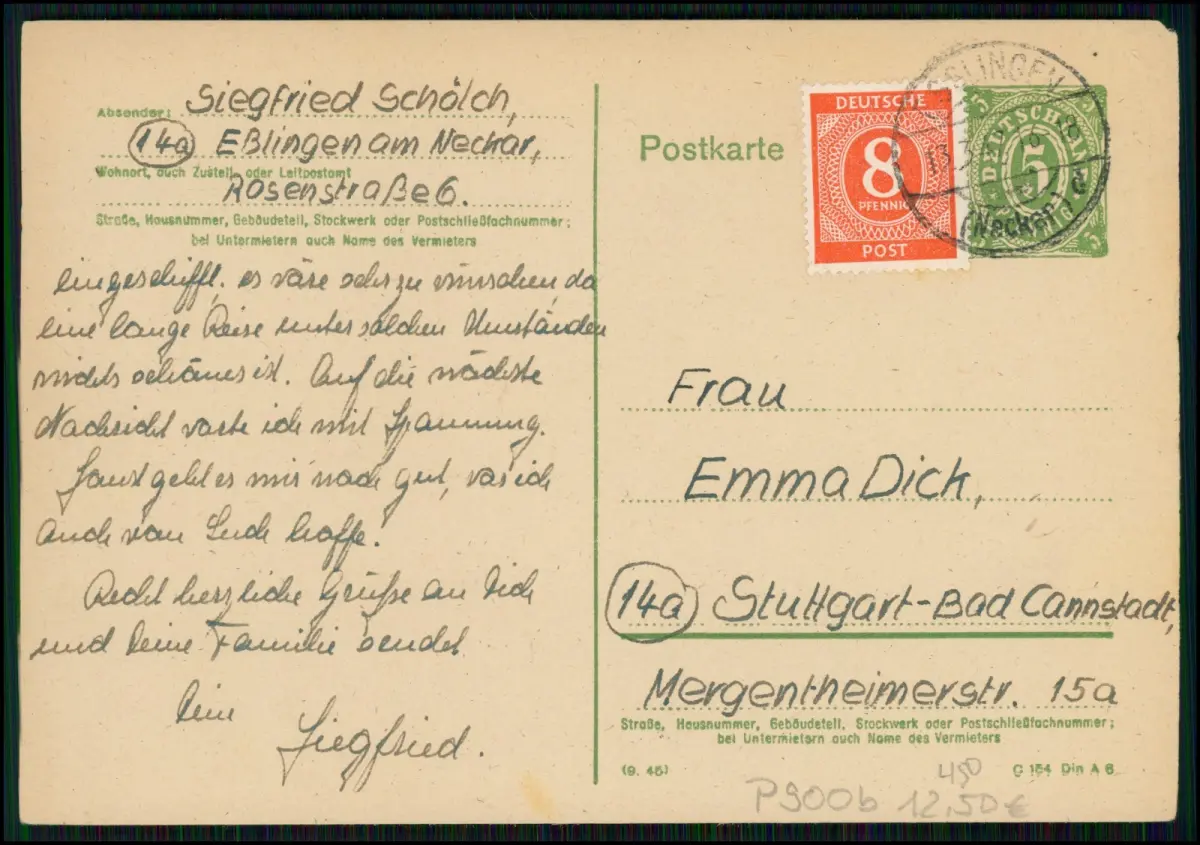 Absender: Siegfried Schölch,
14a Eßlingen am Neckar,
Wohnort, auch Zustell- oder Leitpostamt
Rosenstraße 6.
Straße, Hausnummer, Gebäudeteil, Stockwerk oder Postschließfachnummer;
bei Untermietern auch Name des Vermieters
eingeschifft. es wäre sehr zu wünschen, da
eine lange Reise unter solchen Umständen
nichts schönes ist. Auf die nächste
Nachricht warte ich mit Spannung.
Sonst geht es mir noch gut, was ich
auch von Euch hoffe.
Recht herzliche Grüße an Dich
und Deine Familie sendet
Dein
Siegfried.
Postkarte
DEUTSCHE
8
PFENNIG
POST
DEUTSCHE POST
5
PFENNIG
ESSLINGEN
(Neckar)
Frau
Emma Dick,
14a Stuttgart-Bad Cannstadt,
Mergentheimerstr. 15a
Straße, Hausnummer, Gebäudeteil, Stockwerk oder Postschließfachnummer;
bei Untermietern auch Name des Vermieters
(9. 45)
C 154 Din A 6
450
P900b 12,50 €